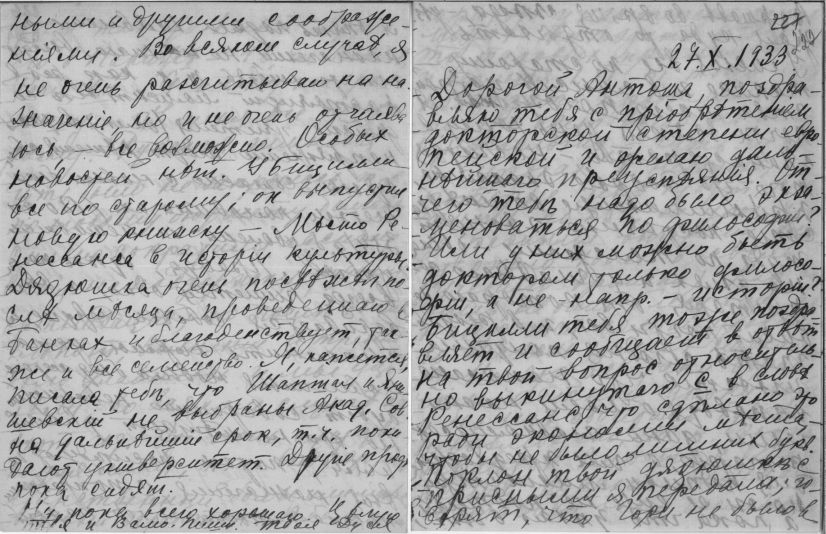 ными и другими сообра­же-
нiями. Во всяком случаѣ, я
не очень разсчитывал на на-
значенiе, но и не очень отчаява-
юсь, — все возможно. Особых
новостей нѣт. У Бицилли
все по старому; он выпустил
новую книжку — Мѣсто Ре-
нессанса в исторiи культуры.
Дядюшка очень посвѣжѣл по-
слѣ мѣсяца, проведеннаго в
Банках и благоденствует, так-
же и все семейство. Я, кажется,
писала тебѣ, что Шаптал и Яни-
шевскiй не выбраны Акад. Сов.
на дальнѣйшiй срок, т.ч. поки-
дают университет. Другiе проф.
пока сидят.
Ну, пока всего хорошаго. Цѣлую
тебя и Вашо. Пиши. Твоя Дуся
227
27.X.1933
Дорогой Антоша, поздра-
вляю тебя с прiобрѣтенiем
докторской степени евро-
пейской и желаю даль-
нѣйшаго преуспѣянiя. От-
чего тебѣ надо было экза-
меноваться по философiи?
Или у них можно быть
доктором только филосо-
фiи, а не — напр. — исторiи?
Бицилли тебя тоже поздра-
вляет и сообщает в отвѣт
на твой вопрос относитель-
но выкинутаго с в словѣ
Ренессанс, что сдѣлано это
ради экономiи мѣста,
чтобы не было лишних букв.
Поклон твой дядюшкѣ с
присными я передала; го-
ворят, что горя не было в